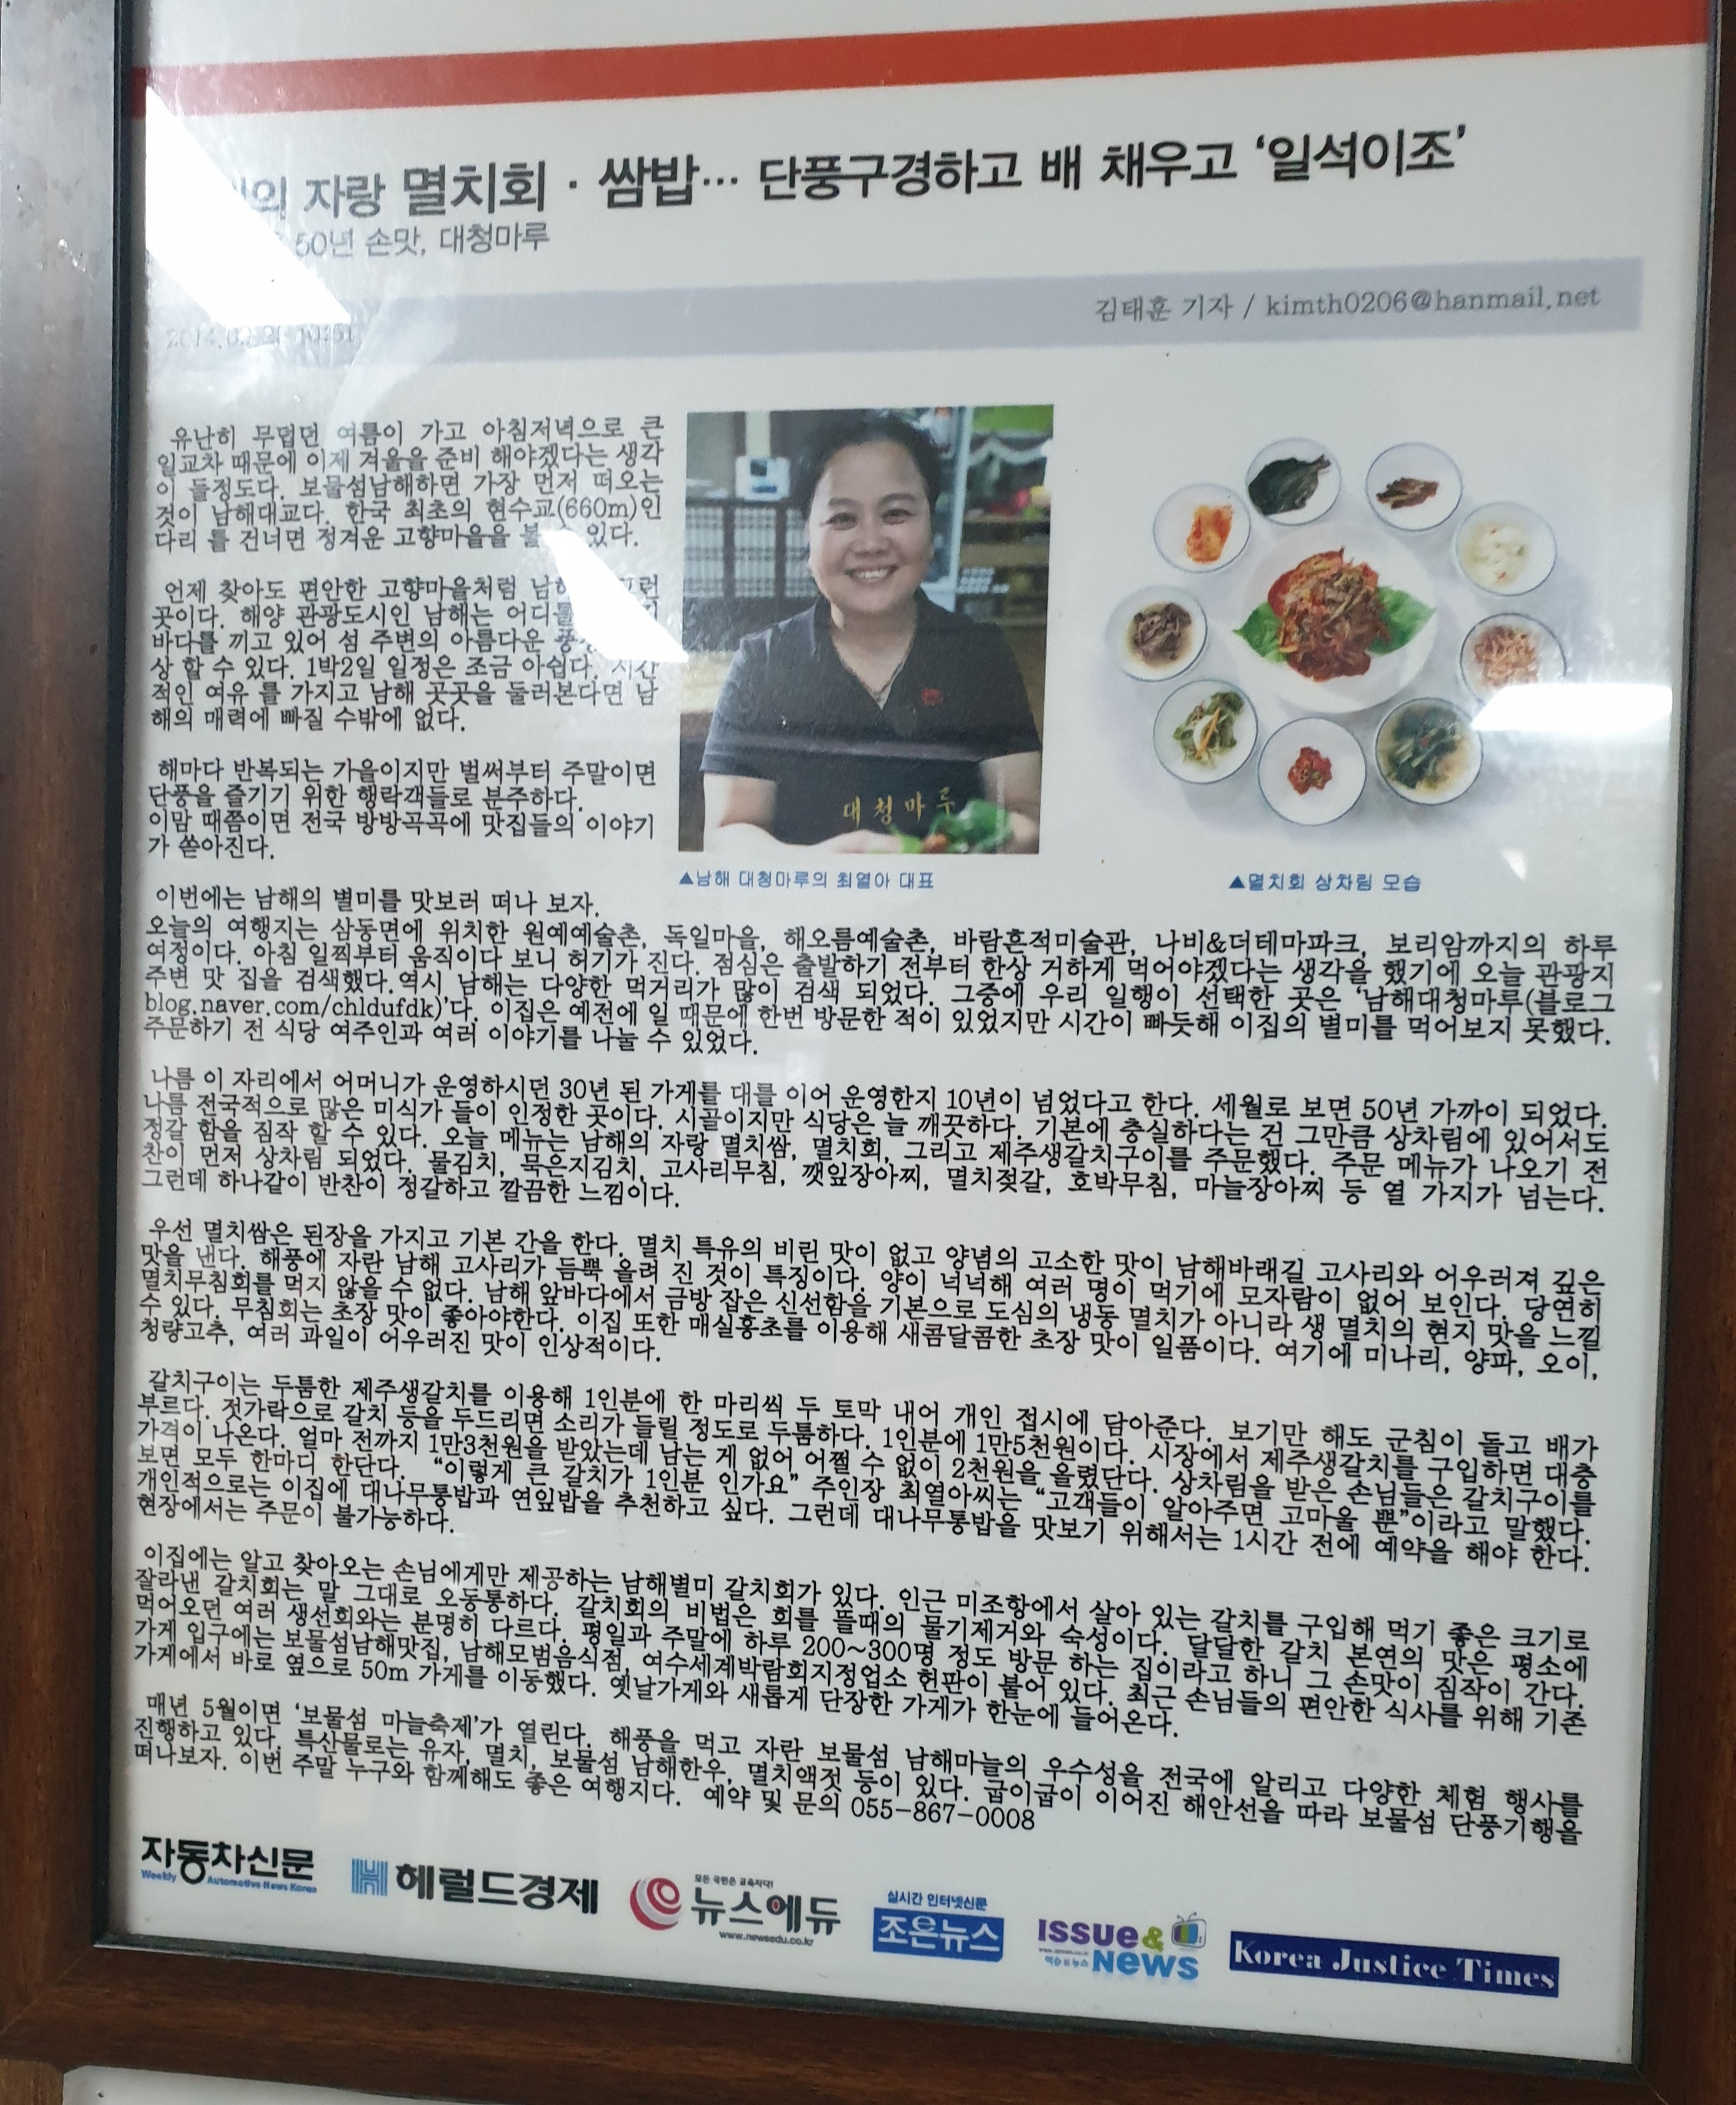 의 자랑 멸치회 · 쌈밥··· 단풍구경하고 배 채우고 '일석이조'
50년 손맛, 대청마루
김태훈 기자 / kimth0206@hanmail.net
유난히 무덥던 여름이 가고 아침저녁으로 큰
일교차 때문에 이제 겨울을 준비 해야겠다는 생각
이 들정도다. 보물섬남해하면 가장 먼저 떠오는
것이 남해대교다. 한국 최초의 현수교(660m)인
다리 를 건너면 정겨운 고향마을을 볼 있다.
언제 찾아도 편안한 고향마을처럼 런
곳이다. 해양 관광도시인 남해는
바다를 끼고 있어 섬 주변의 아름다운
상 할 수 있다. 1박2일 일정은 조금 아쉽다. 시간
적인 여유 를 가지고 남해 곳곳을 둘러본다면 남
해의 매력에 빠질 수밖에 없다.
해마다 반복되는 가을이지만 벌써부터 주말이면
단풍을 즐기기 위한 행락객들로 분주하다.
이맘 때쯤이면 전국 방방곡곡에 맛집들의 이야기
가 쏟아진다.
대청마루
▲남해 대청마루의 최열아 대표
▲멸치회 상차림 모습
이번에는 남해의 별미를 맛보러 떠나 보자.
오늘의 여행지는 삼동면에 위치한 원예예술촌, 독일마을, 해오름예술촌, 바람흔적미술관, 나비&더테마파크, 보리암까지의 하루
여정이다. 아침 일찍부터 움직이다 보니 허기가 진다. 점심은 출발하기 전부터 한상 거하게 먹어야겠다는 생각을 했기에 오늘 관광지
주변 맛 집을 검색했다.역시 남해는 다양한 먹거리가 많이 검색 되었다. 그중에 우리 일행이 선택한 곳은 '남해대청마루(블로그
blog.naver.com/chldufdk)'다. 이집은 예전에 일 때문에 한번 방문한 적이 있었지만 시간이 빠듯해 이집의 별미를 먹어보지 못했다.
주문하기 전 식당 여주인과 여러 이야기를 나눌 수 있었다.
나름 이 자리에서 어머니가 운영하시던 30년 된 가게를 대를 이어 운영한지 10년이 넘었다고 한다. 세월로 보면 50년 가까이 되었다.
나름 전국적으로 많은 미식가 들이 인정한 곳이다. 시골이지만 식당은 늘 깨끗하다. 기본에 충실하다는 건 그만큼 상차림에 있어서도
정갈 함을 짐작 할 수 있다. 오늘 메뉴는 남해의 자랑 멸치쌈, 멸치회, 그리고 제주생갈치구이를 주문했다. 주문 메뉴가 나오기 전
찬이 먼저 상차림 되었다. 물김치, 묵은지김치, 고사리무침, 깻잎장아찌, 멸치젖갈, 호박무침, 마늘장아찌 등 열 가지가 넘는다.
그런데 하나같이 반찬이 정갈하고 깔끔한 느낌이다.
우선 멸치쌈은 된장을 가지고 기본 간을 한다. 멸치 특유의 비린 맛이 없고 양념의 고소한 맛이 남해바래길 고사리와 어우러져 깊은
맛을 낸다. 해풍에 자란 남해 고사리가 듬뿍 올려 진 것이 특징이다. 양이 넉넉해 여러 명이 먹기에 모자람이 없어 보인다. 당연히
멸치무침회를 먹지 않을 수 없다. 남해 앞바다에서 금방 잡은 신선함을 기본으로 도심의 냉동 멸치가 아니라 생 멸치의 현지 맛을 느낄
수 있다. 무침회는 초장 맛이 좋아야한다. 이집 또한 매실홍초를 이용해 새콤달콤한 초장 맛이 일품이다. 여기에 미나리, 양파, 오이,
청량고추, 여러 과일이 어우러진 맛이 인상적이다.
갈치구이는 두툼한 제주생갈치를 이용해 1인분에 한 마리씩 두 토막 내어 개인 접시에 담아준다. 보기만 해도 군침이 돌고 배가
부르다. 젓가락으로 갈치 등을 두드리면 소리가 들릴 정도로 두툼하다. 1인분에 1만5천원이다. 시장에서 제주생갈치를 구입하면 대충
가격이 나온다. 얼마 전까지 1만3천원을 받았는데 남는 게 없어 어쩔 수 없이 2천원을 올렸단다. 상차림을 받은 손님들은 갈치구이를
보면 모두 한마디 한단다. "이렇게 큰 갈치가 1인분 인가요" 주인장 최열아씨는 "고객들이 알아주면 고마울 뿐"이라고 말했다.
개인적으로는 이집에 대나무통밥과 연잎밥을 추천하고 싶다. 그런데 대나무통밥을 맛보기 위해서는 1시간 전에 예약을 해야 한다.
현장에서는 주문이 불가능하다.
이집에는 알고 찾아오는 손님에게만 제공하는 남해별미 갈치회가 있다. 인근 미조항에서 살아 있는 갈치를 구입해 먹기 좋은 크기로
잘라낸 갈치회는 말 그대로 오동통하다. 갈치회의 비법은 회를 뜰때의 물기제거와 숙성이다. 달달한 갈치 본연의 맛은 평소에
먹어오던 여러 생선회와는 분명히 다르다. 평일과 주말에 하루 200~300명 정도 방문 하는 집이라고 하니 그 손맛이 짐작이 간다.
가게 입구에는 보물섬남해맛집, 남해모범음식점, 여수세계박람회지정업소 현판이 붙어 있다. 최근 손님들의 편안한 식사를 위해 기존
가게에서 바로 옆으로 50m 가게를 이동했다. 옛날가게와 새롭게 단장한 가게가 한눈에 들어온다.
매년 5월이면 '보물섬 마늘축제'가 열린다. 해풍을 먹고 자란 보물섬 남해마늘의 우수성을 전국에 알리고 다양한 체험 행사를
진행하고 있다. 특산물로는 유자, 멸치, 보물섬 남해한우, 멸치액젓 등이 있다. 굽이굽이 이어진 해안선을 따라 보물섬 단풍기행을
떠나보자. 이번 주말 누구와 함께해도 좋은 여행지다. 예약 및 문의 055-867-0008
자동차신문
Weekly Automotive News Korea
헤럴드경제
모든 국민은 교육자다!
뉴스에듀
www.newsedu.co.kr
실시간 인터넷신문
조은뉴스
ISSUE&
이슈앤뉴스 News
Korea Justice Times